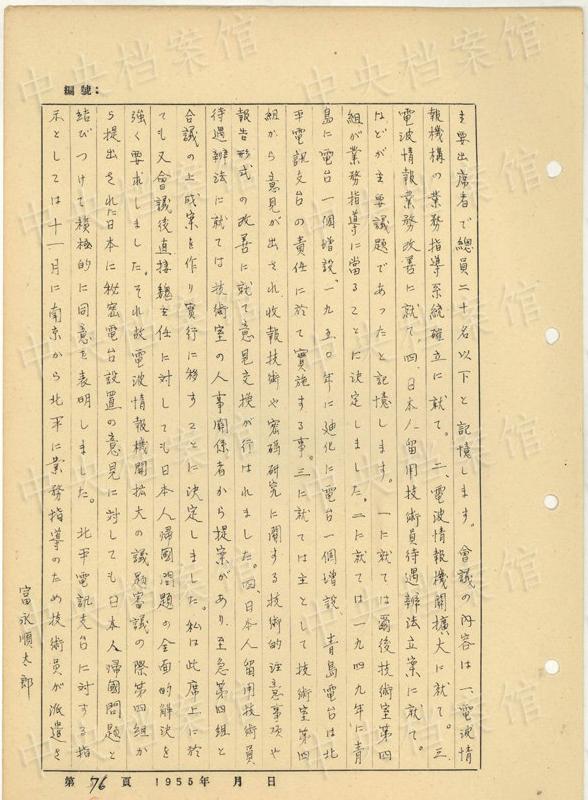 編號：
主要出席者で總員二十名以下と記憶します。會議の內容は一、電波情
報機構の業務指導系統確立に就て。二、電波情報機関擴大に就て。三、
電波情報業務改善に就て。四、日本人留用技術員待遇辦法立案に就て。
などが主要議題であったと記憶します。一に就ては爾後技術室第四
組が業務指導に當ることに決定しました。二に就ては一九四九年に青
島に電台一個増設、一九五〇年に廸化に電台一個増設、青島電台は北
平電訊支台の責任に於て實施する事。三に就ては主として技術室第四
組から意見が出され、收報技術や密碼研究に関する技術的注意事項や
報告形式の改善に就て意見交換が行はれました。四、日本人留用技術員
待遇辦法に就ては技術室の人事関係者から提案があり、至急第四組と
合議の上成案を作り實行に移すことに決定しました。私は此席上に於
ても又會議後直接魏主任に対しても日本人帰國問題の全面的解決を
強く要求しました。それ故電波情報機関拡大の議題審議の際第四組か
ら提出された日本に秘密電台設置の意見に対しても日本人帰國問題と
結びつけて積極的に同意を表明しました。北平電訊支台に対する指
示としては十一月に南京から北平に業務指導のため技術員が派遣さ
富永順太郎
第 76 頁 1955年 月 日
中央档案馆